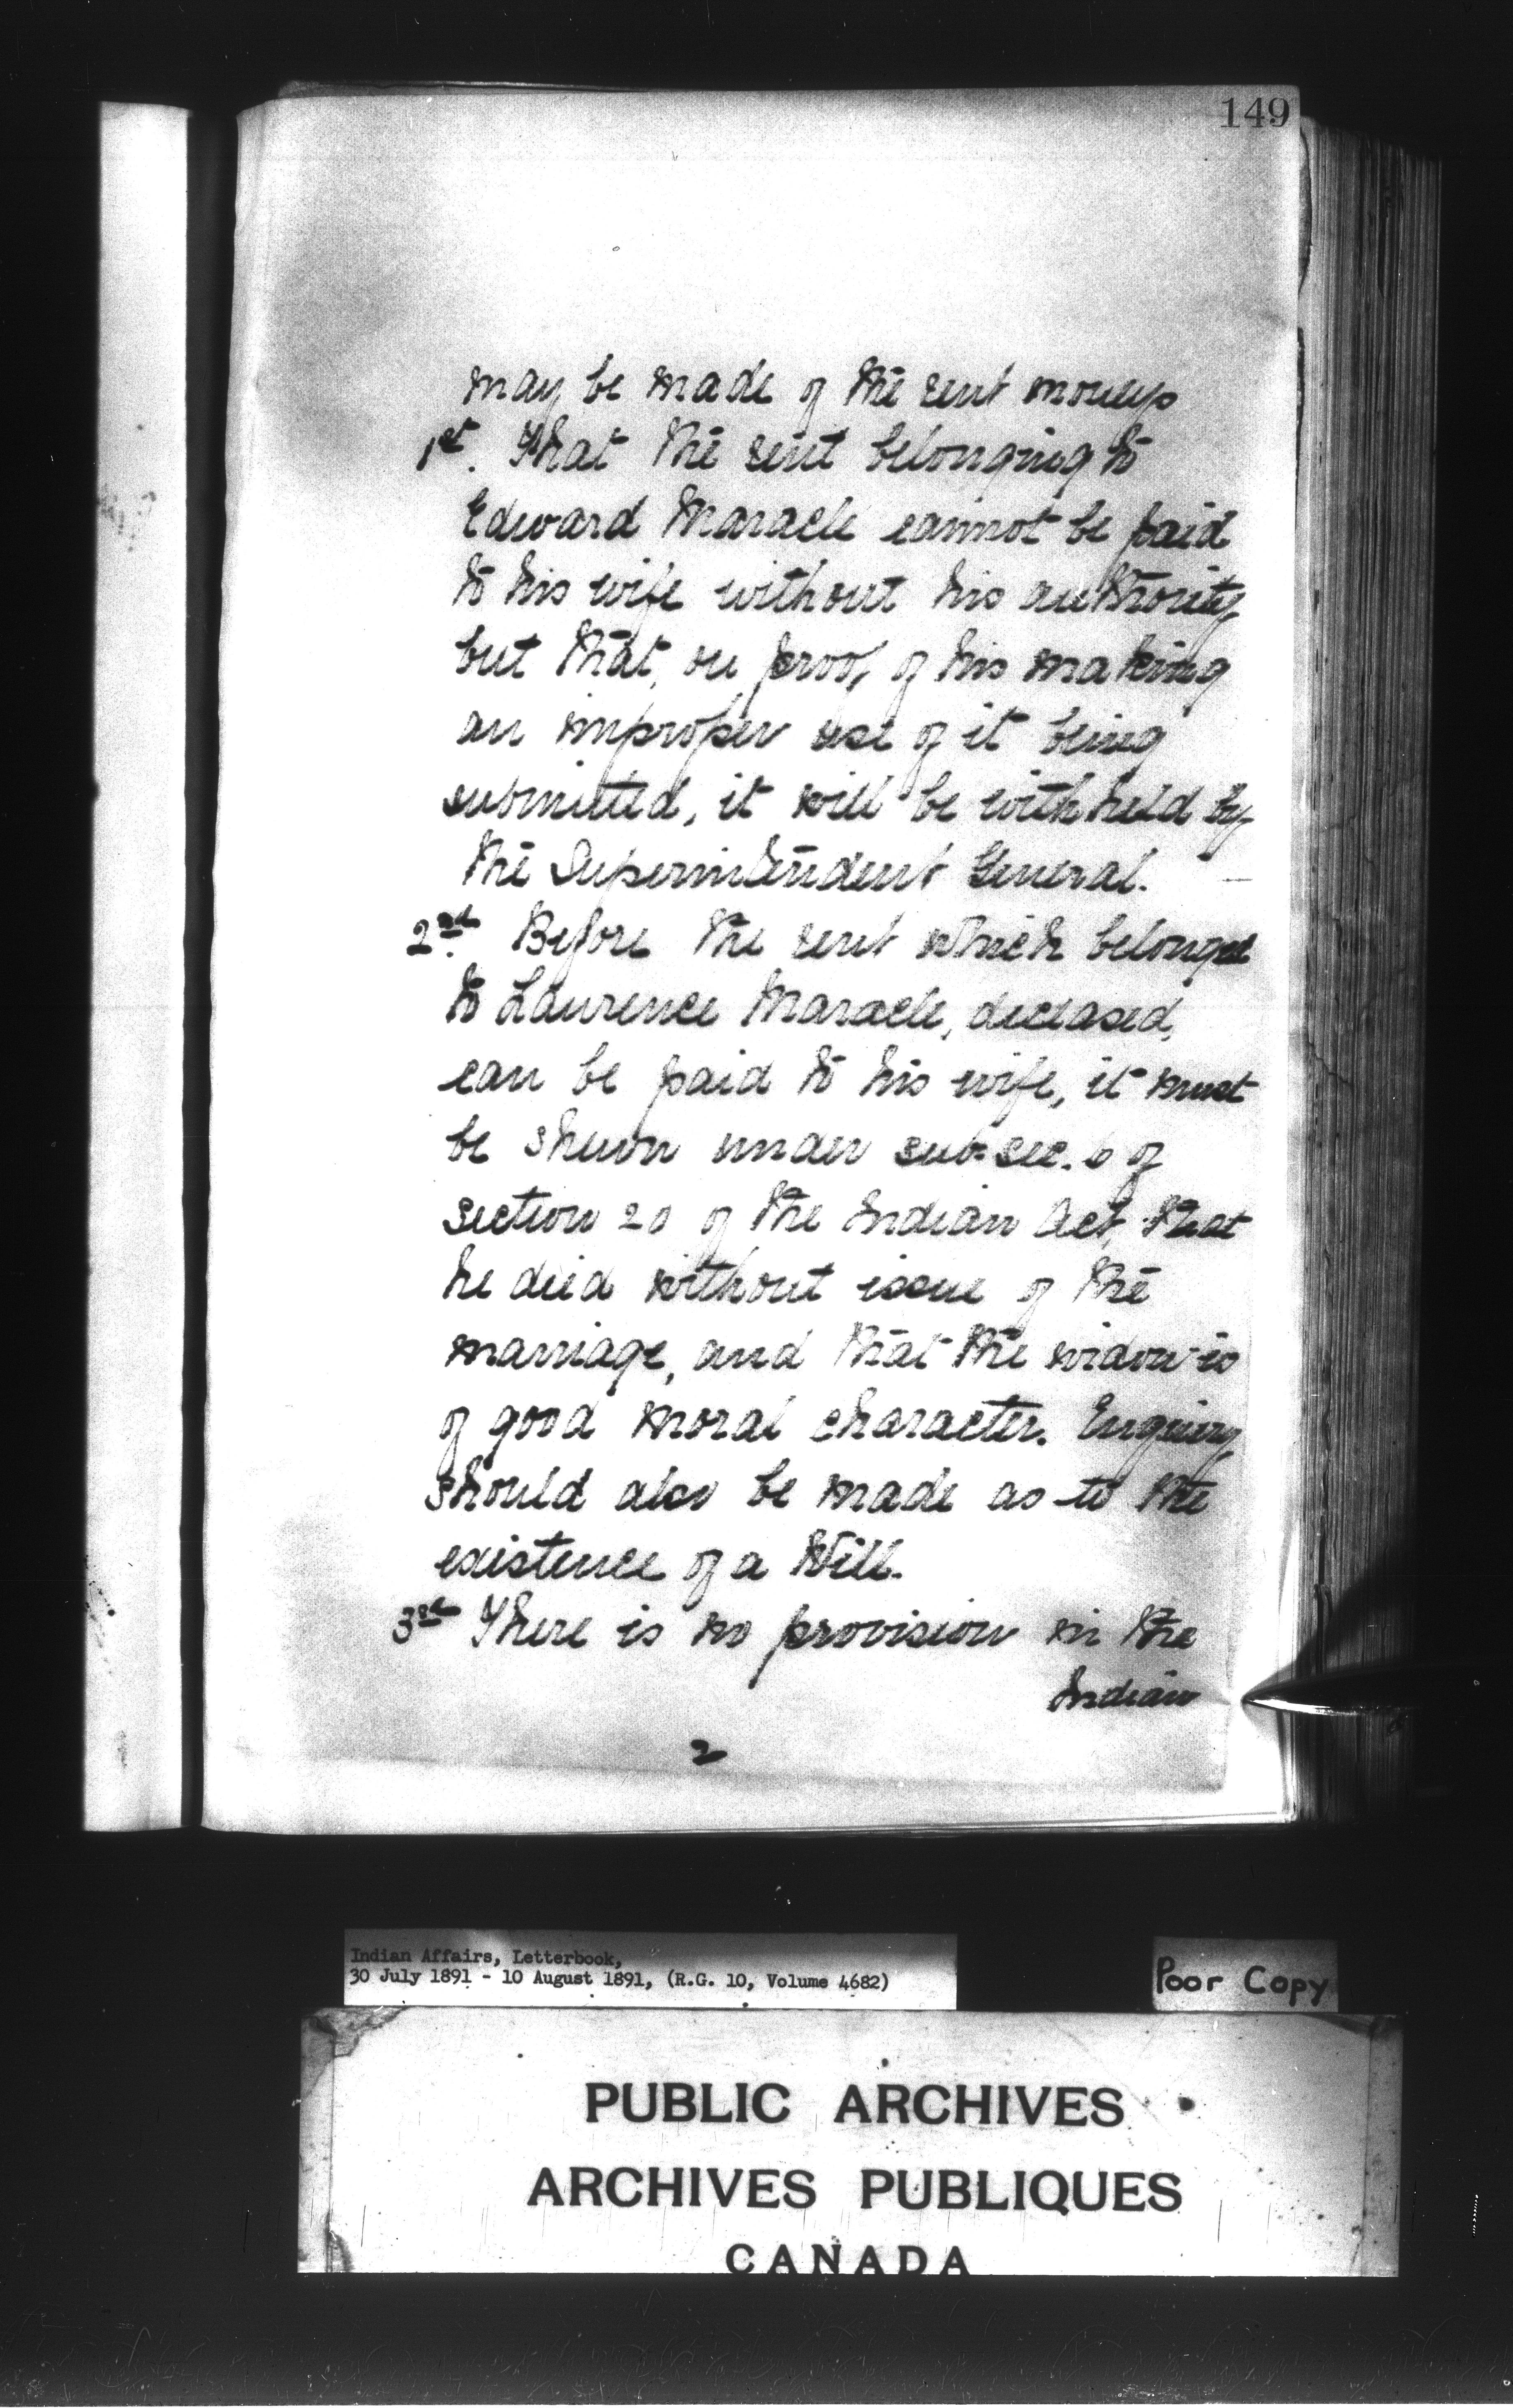 149
may be made of the rent moneys
1st. That the rent belonging to
Edward Maracle cannot be paid
to his wife without his authority
but that, on proof of his making
an improper use of it being
submitted, it will be withheld by
the Superintendent General.
2nd. Before the rent which belonged
to Laurence Maracle, deceased,
can be paid to his wife, it must
be shewn under sub-sec. 6 of
section 20 of the Indian Act, that
he died without issue of the
marriage, and that the widow is
of good moral character. Enquiry
should also be made as to the
existence of a Will.
3rd There is no provision in the
Indian
2
Indian Affairs, Letterbook,
30 July 1891 - 10 August 1891, (R.G. 10, Volume 4682)
Poor Copy
PUBLIC ARCHIVES
ARCHIVES PUBLIQUES
CANADA